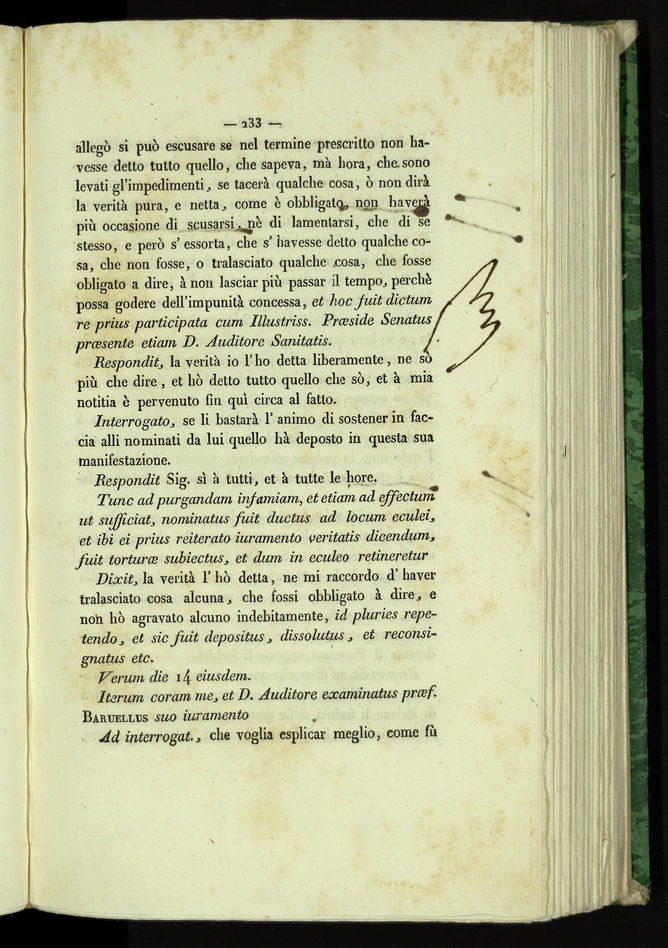 — 233 —
allegò si può escusare se nel termine prescritto non ha-
vesse detto tutto quello, che sapeva, mà hora, che sono
levati gl'impedimenti, se tacerà qualche cosa, ò non dirà
la verità pura, e netta, come è obbligato, non haverà
più occasione di scusarsi, nè di lamentarsi, che di se
stesso, e però s' essorta, che s' havesse detto qualche co-
sa, che non fosse, o tralasciato qualche cosa, che fosse
obligato a dire, à non lasciar più passar il tempo, perchè
possa godere dell'impunità concessa, et hoc fuit dictum
re prius participata cum Illustriss. Præside Senatus
præsente etiam D. Auditore Sanitatis.
Respondit, la verità io l'ho detta liberamente, ne sò
più che dire, et hò detto tutto quello che sò, et à mia
notitia è pervenuto fin quì circa al fatto.
Interrogato, se li bastarà l' animo di sostener in fac-
cia alli nominati da lui quello hà deposto in questa sua
manifestazione.
Respondit Sig. sì à tutti, et à tutte le hore.
Tunc ad purgandam infamiam, et etiam ad effectum
ut sufficiat, nominatus fuit ductus ad locum eculei,
et ibi ei prius reiterato iuramento veritatis dicendum,
fuit torturæ subiectus, et dum in eculeo retineretur
Dixit, la verità l' hò detta, ne mi raccordo d' haver
tralasciato cosa alcuna, che fossi obbligato à dire, e
non hò agravato alcuno indebitamente, id pluries repe-
tendo, et sic fuit depositus, dissolutus, et reconsi-
gnatus etc.
Verum die 14 eiusdem.
Iterum coram me, et D. Auditore examinatus præf.
BARUELLUS suo iuramento
Ad interrogat., che voglia esplicar meglio, come fù